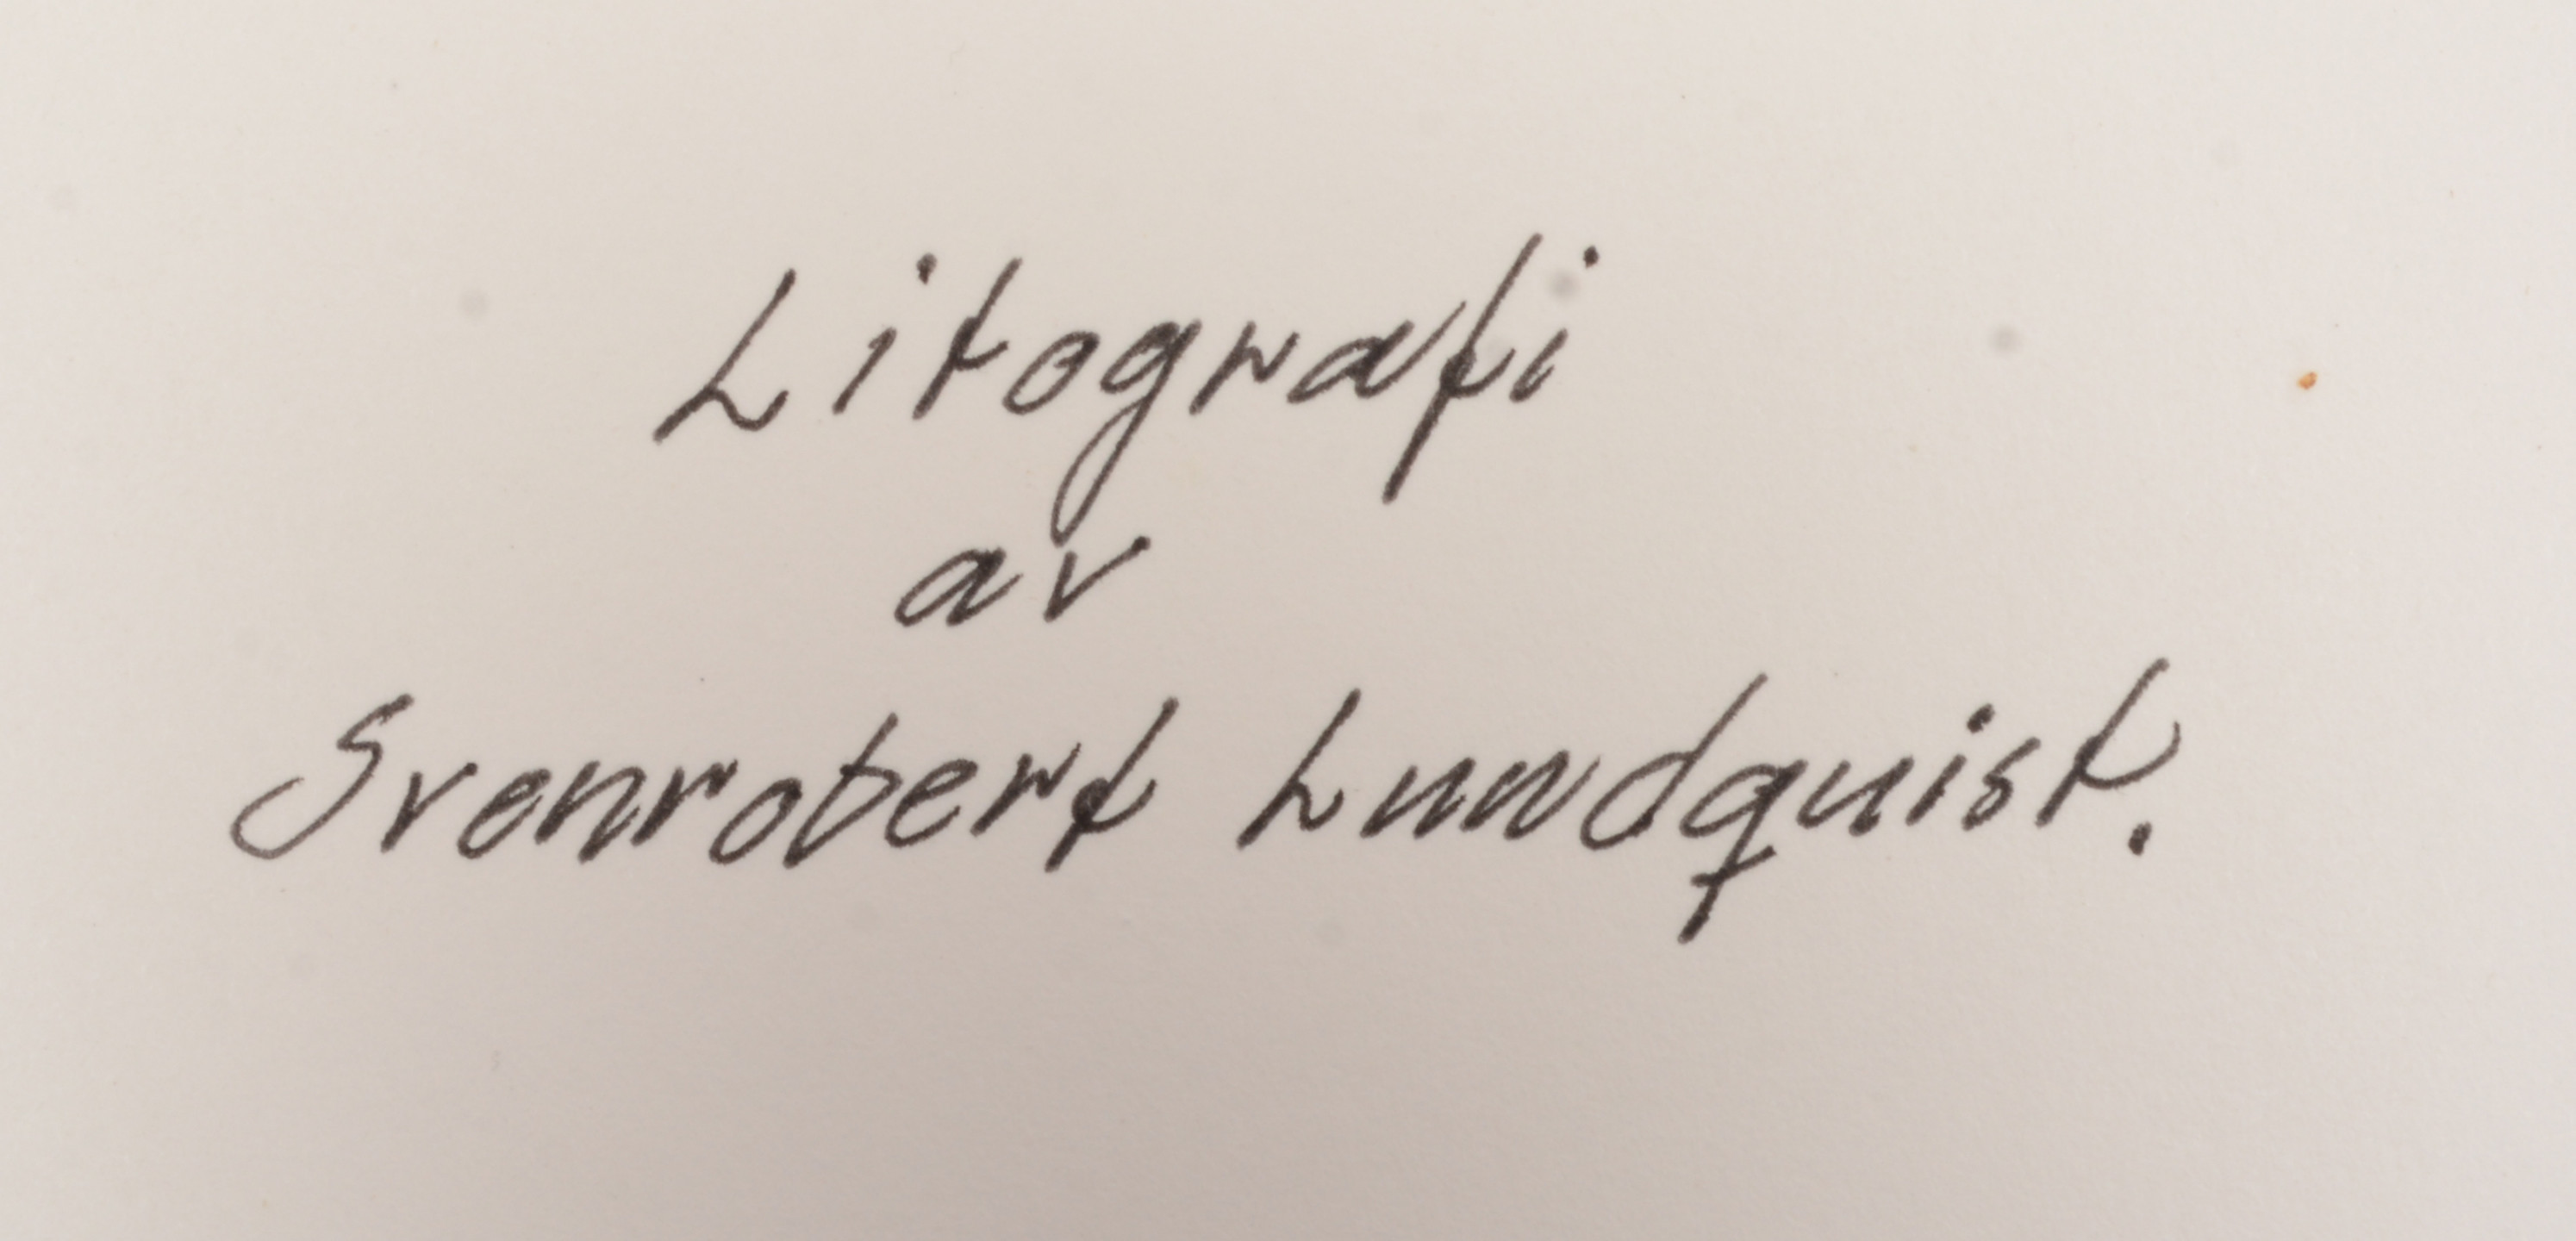 Litografi
av
Svenrobert Lundquist.